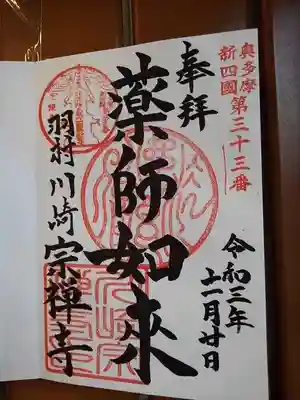 奥多摩
新四國第三十三番
奉拝
薬師如来
羽村川崎宗禅寺
令和三年
十一月廿日